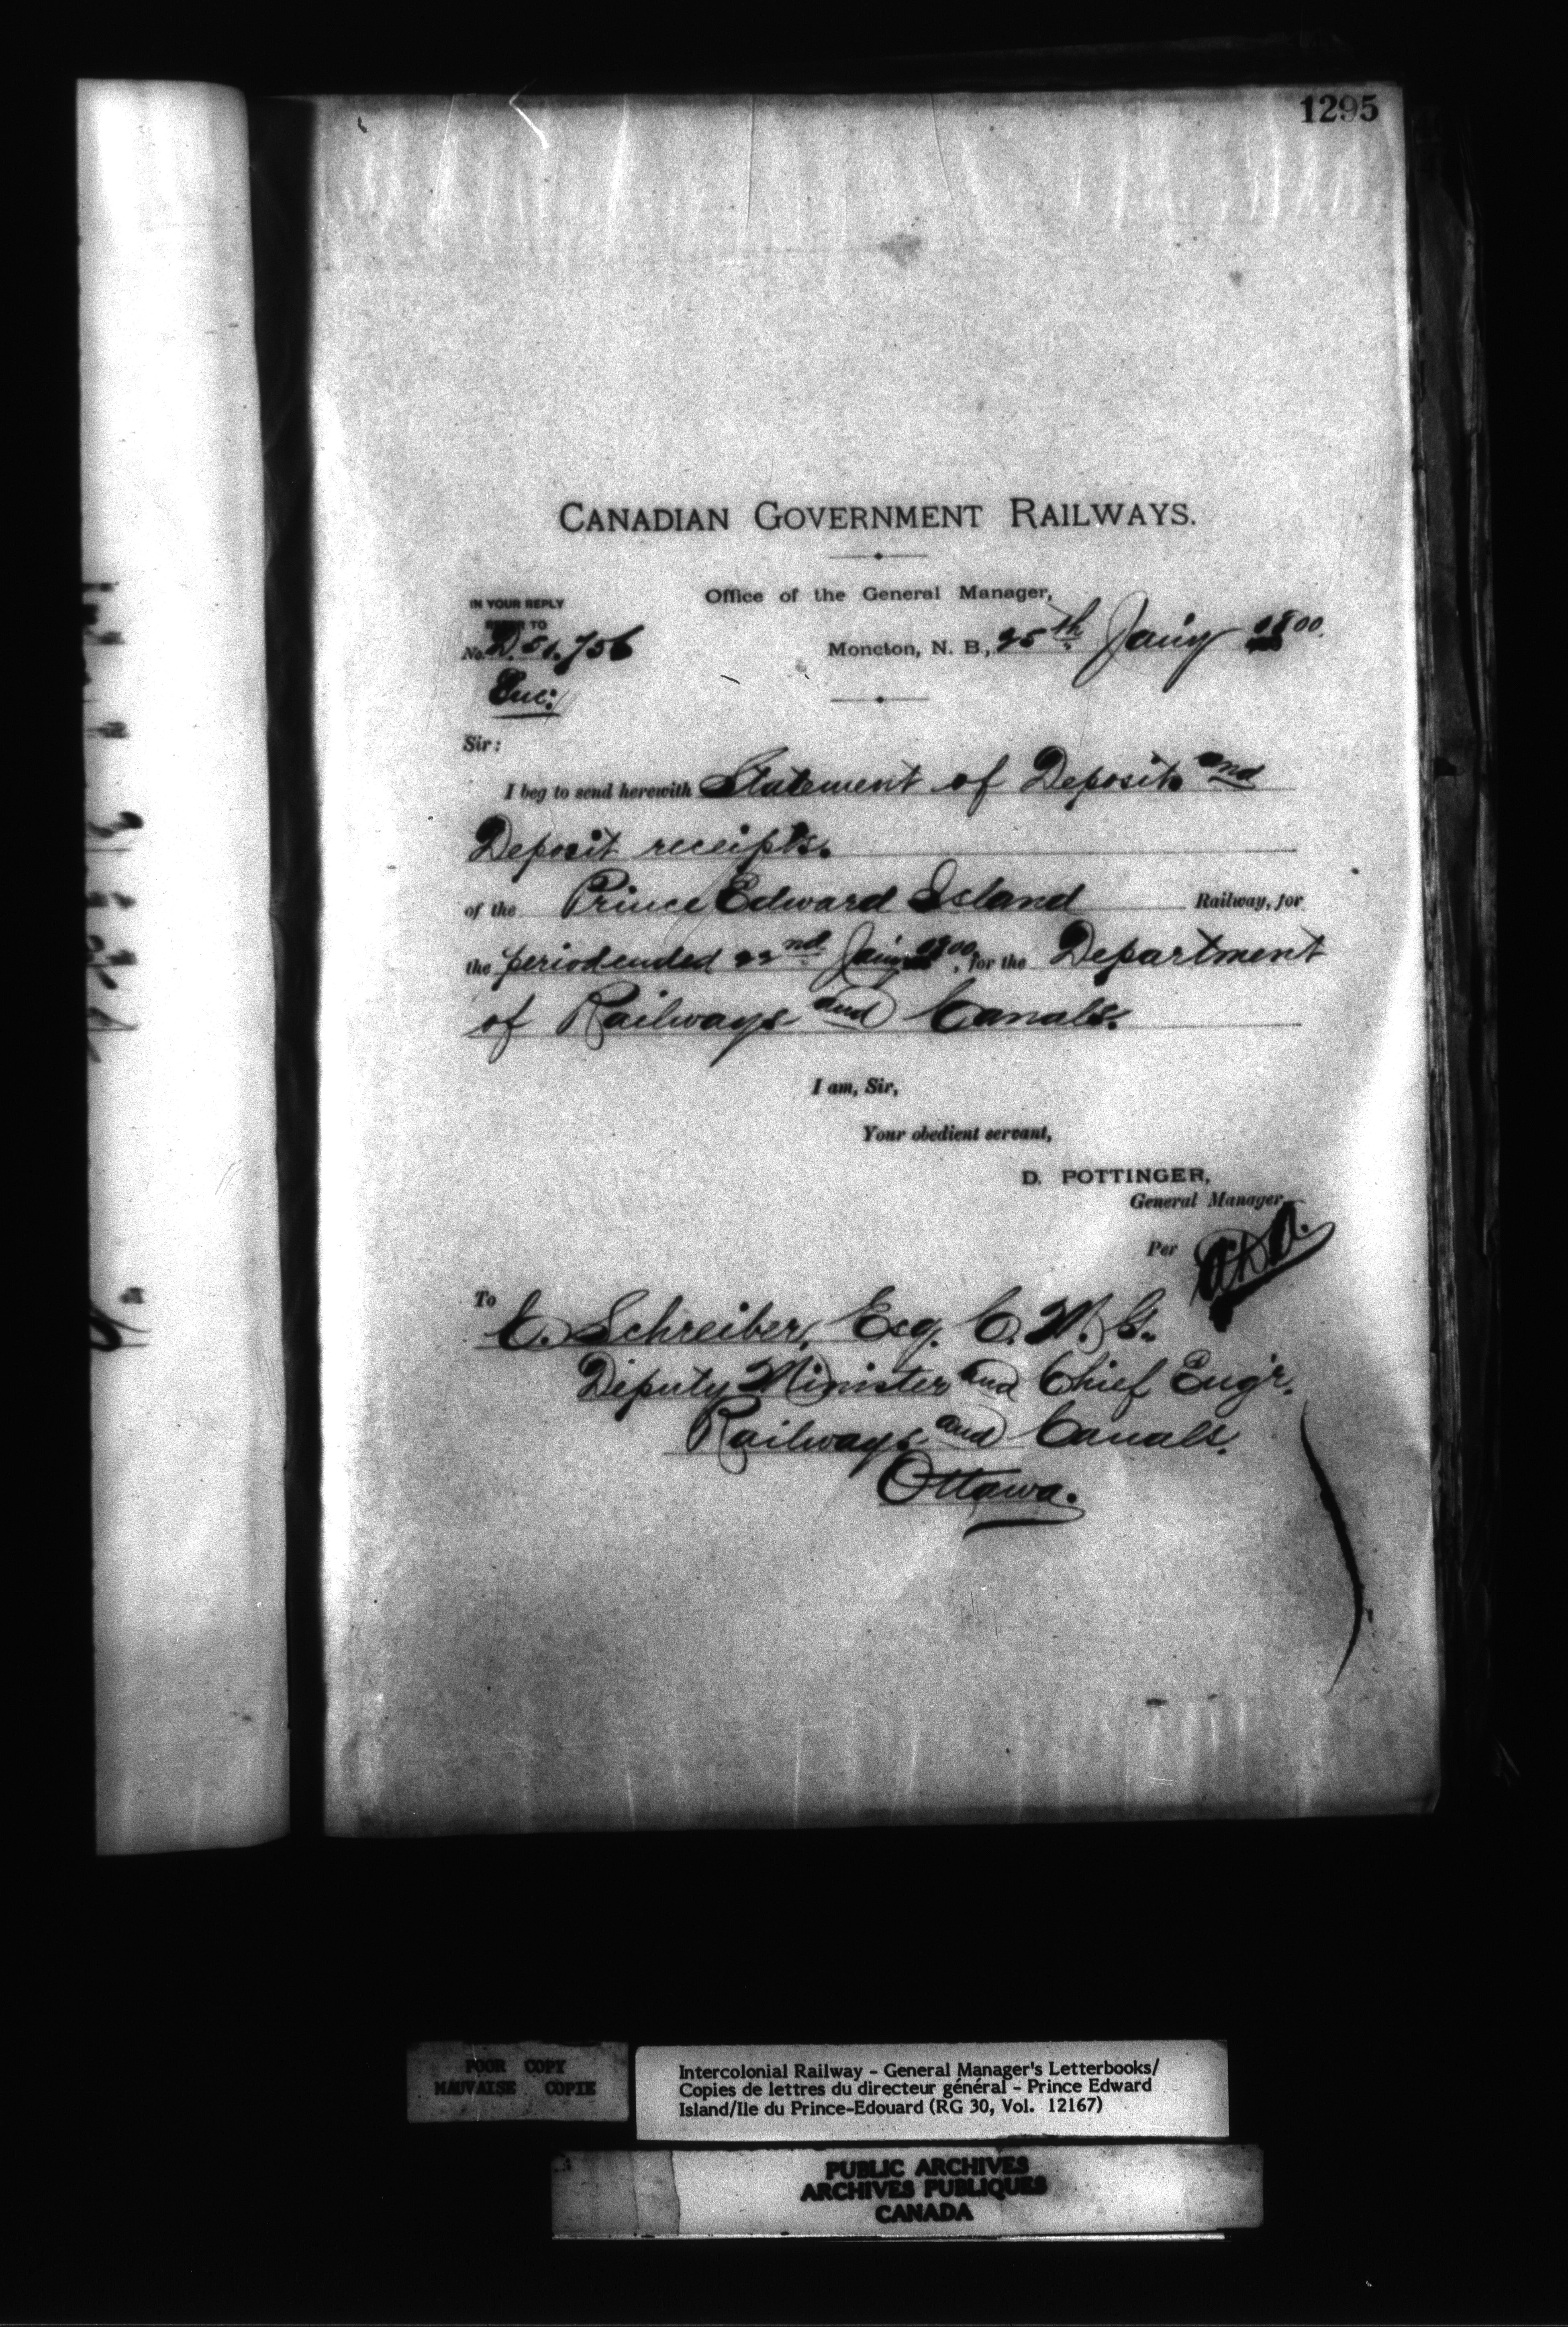 1295
CANADIAN GOVERNMENT RAILWAYS.
Office of the General Manager,
IN YOUR REPLY
REFER TO
No. D. 51.756
Moncton, N. B., 25th Jany 1900.
Enc:
Sir:
I beg to send herewith Statement of Deposits and
Deposit receipts.
of the Prince Edward Island Railway, for
the period ended 22nd Jany 1900, for the Department
of Railways and Canals.
I am, Sir,
Your obedient servant,
D. POTTINGER,
General Manager
Per
To C. Schreiber, Esq. C. M. G.
Deputy Minister and Chief Engr.
Railways and Canals.
Ottawa.
POOR COPY
MAUVAISE COPIE
Intercolonial Railway - General Manager's Letterbooks/
Copies de lettres du directeur général - Prince Edward
Island/Ile du Prince-Edouard (RG 30, Vol. 12167)
PUBLIC ARCHIVES
ARCHIVES PUBLIQUES
CANADA